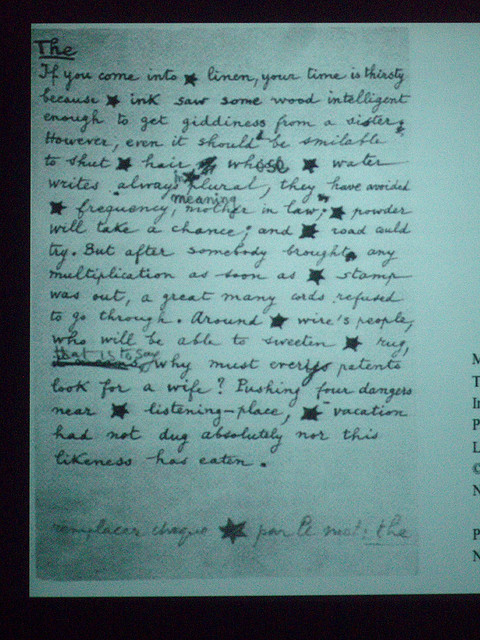 The
If you come into ★ linen, your time is thirsty
because ★ ink saw some wood intelligent
enough to get giddiness from a sister.
However, even it should be smilable
to shut ★ hair whose ★ water
writes always in ★ plural, they have avoided
★ frequency, meaning mother in law; ★ powder
will take a chance; and ★ road could
try. But after somebody brought any
multiplication as soon as ★ stamp
was out, a great many cords refused
to go through. Around ★ wire's people,
who will be able to sweeten ★ rug,
that is to say, why must every patents
look for a wife? Pushing four dangers
near ★ listening-place, ★ vacation
had not dug absolutely nor this
likeness has eaten.
remplacer chaque ★ par le mot: the
M
T
In
P
L
©
N
P
N